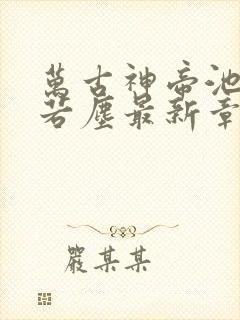 萬古神帝池
若塵最新章
嚴某某